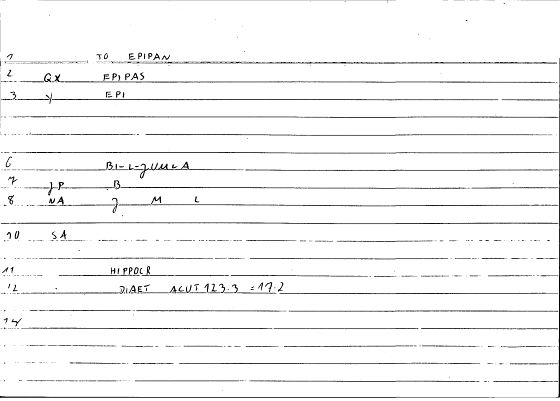 1 TO EPIPAN
2 QX EPIPAS
3 y EPI
6 BI-L-JUMLA
7 JP B
8 NA J M L
10 SA
11 HIPPOCR
12 DIAET ACUT 123.3 = 17.2
14